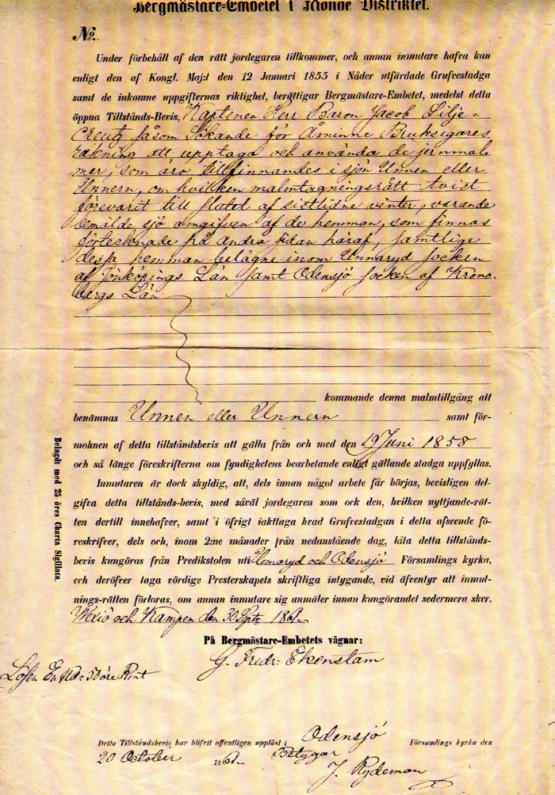 Bergmästare-Embetet i Monde Distriktet.
№.
Under förbehåll af den rätt jordegaren tillkommer, och annan inmutare hafva kan
enligt den af Kongl. Maj:t den 12 Januari 1855 i Nåder utfärdade Grufvestadga
samt de inkomne uppgifternas riktighet, berättigar Bergmästare-Embetet, medelst detta
öppna Tillstånds-Bevis, Kaptenen Herr Baron Jacob Silje-
Creutz såsom sökande för Åminne Bruksegares
räkning att upptaga och använda de jernmal-
mer, som äro tillfinnandes i sjön Unnen eller
Unnern, om hvilken malmtagningsrätt tvist
förevarit till slutet af sistlidne vinter, varande
bemälde sjö omgifven af de hemman, som finnas
förtecknade på andra sidan häraf, samtlige
dess hemman belägne inom Unnaryd socken
af Jönköpings Län samt Odensjö socken af Krono-
bergs Län
kommande denna malmtillgång att
benämnas Unnen eller Unnern samt för-
månen af detta tillståndsbevis att gälla från och med den 19 Juni 1858
och så länge föreskrifterna om fyndighetens bearbetande enligt gällande stadga uppfyllas.
Inmutaren är dock skyldig, att, dels innan något arbete får börjas, bevisligen del-
gifva detta tillstånds-bevis, med såväl jordegaren som ock den, hvilken nyttjande-rät-
ten dertill innehafver, samt i öfrigt iakttaga hvad Grufvestadgan i detta afseende fö-
reskrifver, dels och, inom 2:ne månader från nedanstående dag, låta detta tillstånds-
bevis kungöras från Predikstolen uti Unnaryd och Odensjö Församlings kyrka,
och deröfver taga vördige Presterskapets skriftliga intygande, vid äfventyr att inmut-
nings-rätten förloras, om annan inmutare sig anmäler innan kungörandet sedermera sker.
Wexiö och Kampen den 30 Sept. 186
På Bergmästare-Embetets vägnar:
G. Fredr: Ekenstam
Lösen En Rd: 50 öre Rmt
Belagdt med 25 öres Charta Sigillata.
Detta Tillståndsbevis har blifvit offentligen uppläst i Odensjö Församlings kyrka den
20 October 186 Betygar
J. Rydeman